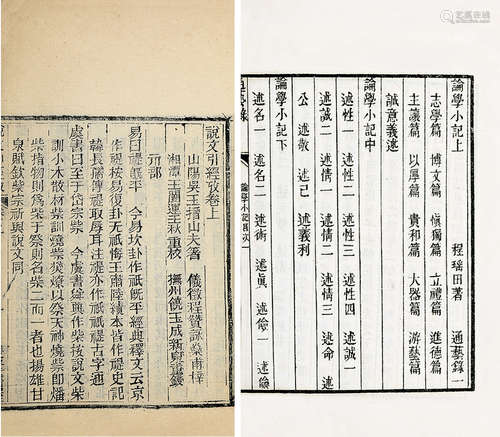 說文引經攷卷上
山陽吳玉搢山夫著 儀徵程贊詠棻甫梓
湘潭王闓運壬秋重校 撫州饒玉成新寮重雙
示部
易曰禔既平 今易坎卦作祇既平經典釋文云京
作禔按易復卦无祇悔王肅陸績本皆作禔史記
韓長孺傳禔取辱耳注禔亦作祇祇禔古字通
虞書曰至于岱宗祡 今虞書舜典作柴按說文柴
訓小木散材祡訓燒祡燓燎以祭天神燒柴即燔
柴指物則爲柴于祭則名祡二而一者也揚雄甘
泉賦欽祡宗祈與說文同
論學小記上 程瑤田著 通藝錄一
志學篇 博文篇 愼獨篇 立禮篇 進德篇
主讓篇 以厚篇 貴和篇 大器篇 游藝篇
誠意義述
論學小記中
述性一 述性二 述性三 述性四 述誠一
述誠二 述情一 述情二 述情三 述命
公 述敬 述己 述義利
論學小記下
述名一 述名二 述術 述眞 述儉一 述儉
論學小記目次